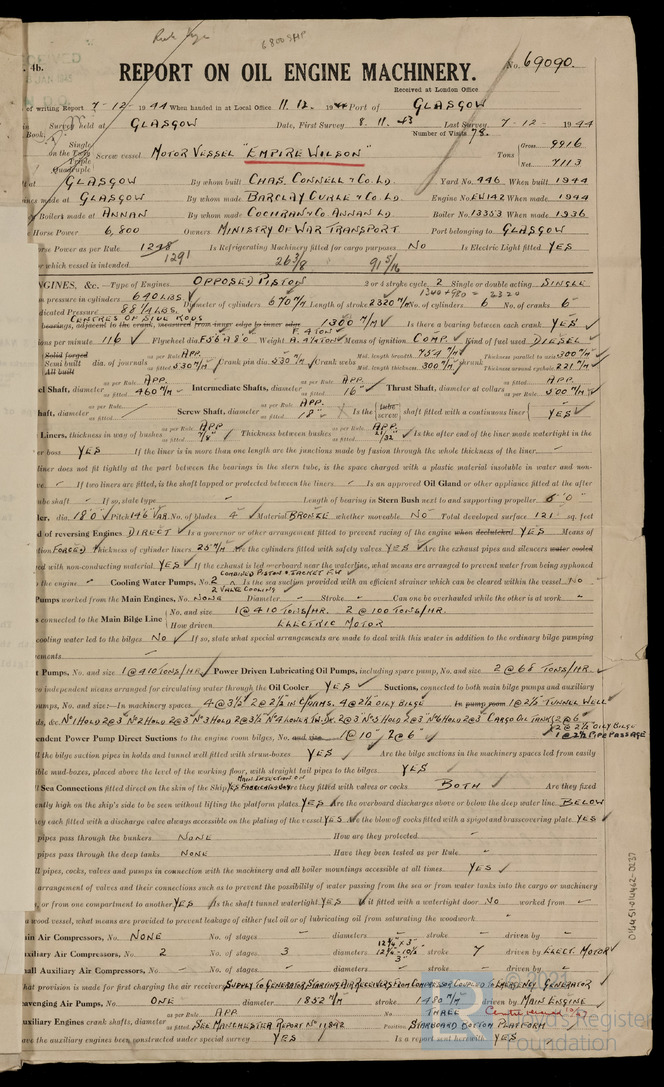 4b.
6800 SHP
REPORT ON OIL ENGINE MACHINERY.
No. 69090.
Received at London Office
of writing Report 7-12-1944 When handed in at Local Office 11.12.1944 Port of GLASGOW
Survey held at GLASGOW Date, First Survey 8.11.43 Last Survey 7-12-1944
Book. Number of Visits 78.
Single
on the Twin
Triple
Quadruple
Screw vessel MOTOR VESSEL "EMPIRE WILSON" Tons Gross 9916
Net 7113
at GLASGOW By whom built CHAS. CONNELL & Co. LD. Yard No. 446 When built 1944
made at GLASGOW By whom made BARCLAY CURLE & Co. LD. Engine No. EW142 When made 1944
Boilers made at ANNAN By whom made COCHRAN & Co. ANNAN LD. Boiler No. 13353 When made 1936
Horse Power 6,800 Owners MINISTRY OF WAR TRANSPORT Port belonging to GLASGOW
Horse Power as per Rule 1248 Is Refrigerating Machinery fitted for cargo purposes NO Is Electric Light fitted YES
1291
for which vessel is intended 26 3/8 91 5/16
ENGINES, &c.—Type of Engines OPPOSED PISTON 2 or 4 stroke cycle 2 Single or double acting SINGLE
1340 + 980 = 2320
pressure in cylinders 640 LBS. Diameter of cylinders 670 M/M Length of stroke 2320 M/M No. of cylinders 6 No. of cranks 6
dicated Pressure 88 1/4 LBS.
CENTRES OF SIDE RODS
bearings, adjacent to the crank, measured from inner edge to inner edge 1300 M/M Is there a bearing between each crank YES
ons per minute 116 Flywheel dia. Weight Means of ignition COMP. Kind of fuel used DIESEL
Solid forged
Semi built
All built
dia. of journals as per Rule APP. as fitted 530 M/M Crank pin dia. 530 M/M Crank webs Mid. length breadth 754 M/M Mid. length thickness 300 M/M shrunk Thickness parallel to axis 300 M/M Thickness around eyehole 221 M/M
Shaft, diameter as per Rule APP. as fitted 460 M/M Intermediate Shafts, diameter as per Rule APP. as fitted 16" Thrust Shaft, diameter at collars as per Rule APP. as fitted 500 M/M
haft, diameter as per Rule as fitted Screw Shaft, diameter as per Rule APP. as fitted 18" Is the tube screw shaft fitted with a continuous liner YES
Liners, thickness in way of bushes as per Rule APP. as fitted 7/8" Thickness between bushes as per Rule APP. as fitted 21/32" Is the after end of the liner made watertight in the
er boss YES If the liner is in more than one length are the junctions made by fusion through the whole thickness of the liner -
liner does not fit tightly at the part between the bearings in the stern tube, is the space charged with a plastic material insoluble in water and non-
If two liners are fitted, is the shaft lapped or protected between the liners - Is an approved Oil Gland or other appliance fitted at the after
tube shaft - If so, state type - Length of bearing in Stern Bush next to and supporting propeller 6'0"
ler, dia. 18'0" Pitch 14'6" VAR. No. of blades 4 Material BRONZE whether moveable NO Total developed surface 121 sq. feet
d of reversing Engines DIRECT Is a governor or other arrangement fitted to prevent racing of the engine when declutched YES Means of
tion FORCED Thickness of cylinder liners 25 M/M Are the cylinders fitted with safety valves YES Are the exhaust pipes and silencers water cooled
ged with non-conducting material YES If the exhaust is led overboard near the waterline, what means are arranged to prevent water from being syphoned
COMBINED PISTON & JACKET F.W.
the engine - Cooling Water Pumps, No. 2 Is the sea suction provided with an efficient strainer which can be cleared within the vessel NO
2 VALVE COOLING
Pumps worked from the Main Engines, No. NONE Diameter - Stroke - Can one be overhauled while the other is at work -
connected to the Main Bilge Line No. and size 1@410 TONS/HR. 2@100 TONS/HR.
How driven ELECTRIC MOTOR
cooling water led to the bilges NO If so, state what special arrangements are made to deal with this water in addition to the ordinary bilge pumping
ements -
t Pumps, No. and size 1@410 TONS/HR. Power Driven Lubricating Oil Pumps, including spare pump, No. and size 2@65 TONS/HR.
independent means arranged for circulating water through the Oil Cooler YES Suctions, connected to both main bilge pumps and auxiliary
umps, No. and size:—In machinery spaces 4@3 1/2 2@2 1/2 IN C/DAMS, 4@2 1/2 OILY BILGE In pump room 1@2 1/2 TUNNEL WELL
ds, &c. No1 HOLD 2@3 No2 HOLD 2@3 1/2 No3 HOLD 2@3 1/2 No4 LOWER TW. DK. 2@3 No5 HOLD 2@3 No6 HOLD 2@3 CARGO OIL TANKS 2@6
2@2 1/2 OILY BILGE
1@2 1/2 PIPE PASSAGE
endent Power Pump Direct Suctions to the engine room bilges, No. and size 1@10" 2@6"
ll the bilge suction pipes in holds and tunnel well fitted with strum-boxes YES Are the bilge suctions in the machinery spaces led from easily
ible mud-boxes, placed above the level of the working floor, with straight tail pipes to the bilges YES
Sea Connections fitted direct on the skin of the Ship Are they fitted with valves or cocks BOTH Are they fixed
ently high on the ship's side to be seen without lifting the platform plates YES Are the overboard discharges above or below the deep water line BELOW
they each fitted with a discharge valve always accessible on the plating of the vessel YES Are the blow off cocks fitted with a spigot and brass covering plate YES
pipes pass through the bunkers NONE How are they protected -
pipes pass through the deep tanks NONE Have they been tested as per Rule -
ll pipes, cocks, valves and pumps in connection with the machinery and all boiler mountings accessible at all times YES
arrangement of valves and their connections such as to prevent the possibility of water passing from the sea or from water tanks into the cargo or machinery
or from one compartment to another YES Is the shaft tunnel watertight YES Is it fitted with a watertight door NO worked from -
wood vessel, what means are provided to prevent leakage of either fuel oil or of lubricating oil from saturating the woodwork -
ain Air Compressors, No. NONE No. of stages - diameters - stroke - driven by -
uxiliary Air Compressors, No. 2 No. of stages 3 diameters stroke 7 driven by ELECT. MOTOR
all Auxiliary Air Compressors, No. - No. of stages - diameters - stroke - driven by -
hat provision is made for first charging the air receivers SUPPLY TO GENERATOR STARTING AIR RECEIVERS FROM COMPRESSOR COUPLED TO EMERGENCY GENERATOR
avenging Air Pumps, No. ONE diameter 1852 M/M stroke 1480 M/M driven by MAIN ENGINE
uxiliary Engines crank shafts, diameter as per Rule APP. as fitted SEE MANCHESTER REPORT No 11842 No. THREE
Position STARBOARD BOTTOM PLATFORM
ave the auxiliary engines been constructed under special survey YES Is a report sent herewith YES
016451-016462-0237
© 2021
Lloyd's Register
Foundation